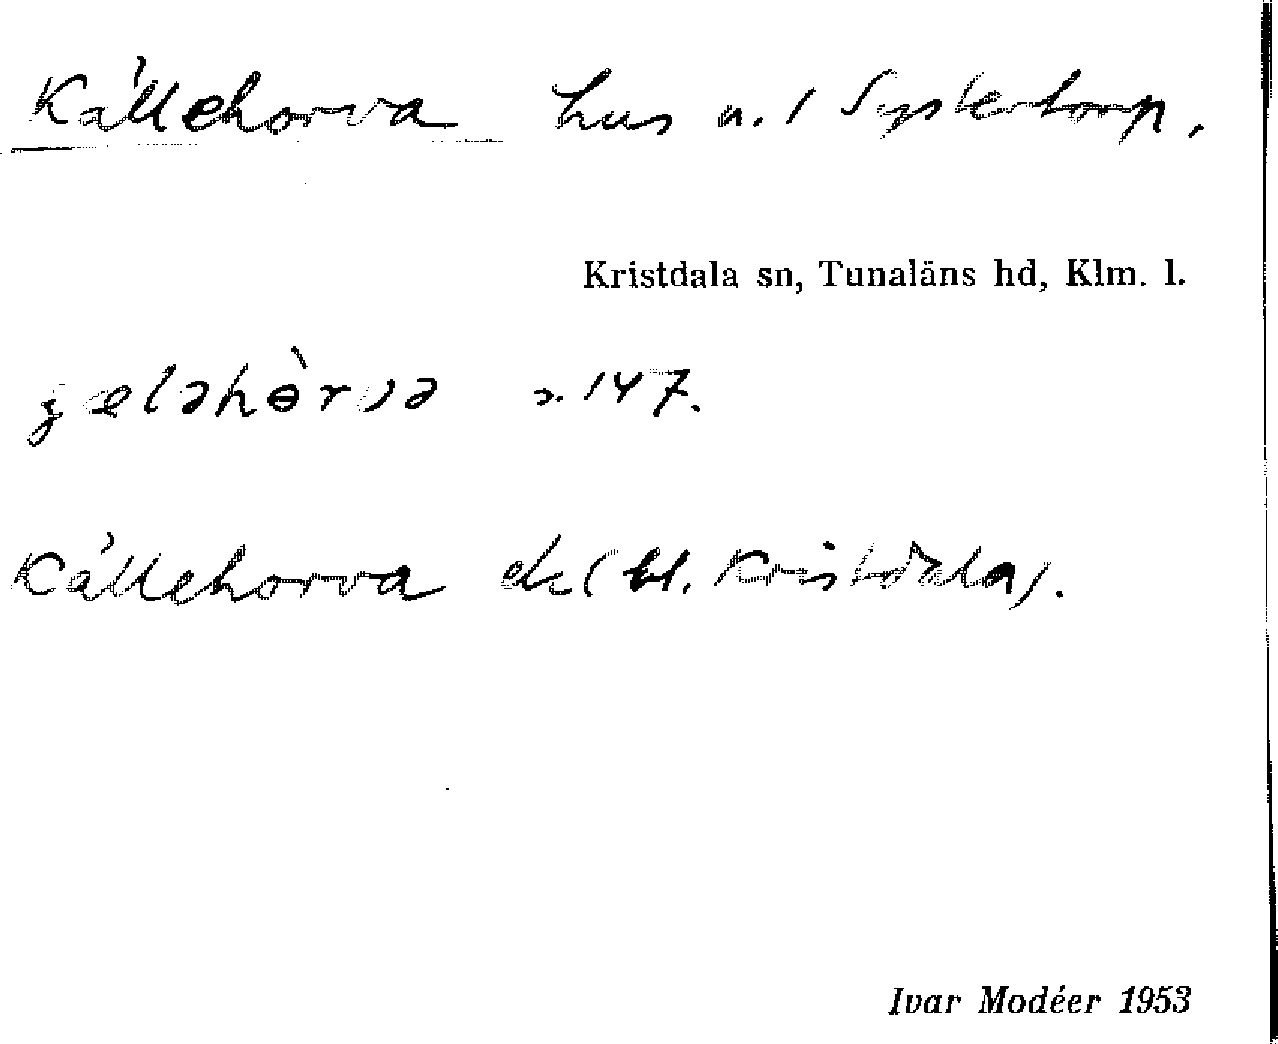 Källehorva hus n. / Systertorp.
Kristdala sn, Tunaläns hd, Klm. l.
ɟæləhɵ̀rvə s. 147.
Källehorva ek (bl. Kristdala).
Ivar Modéer 1953